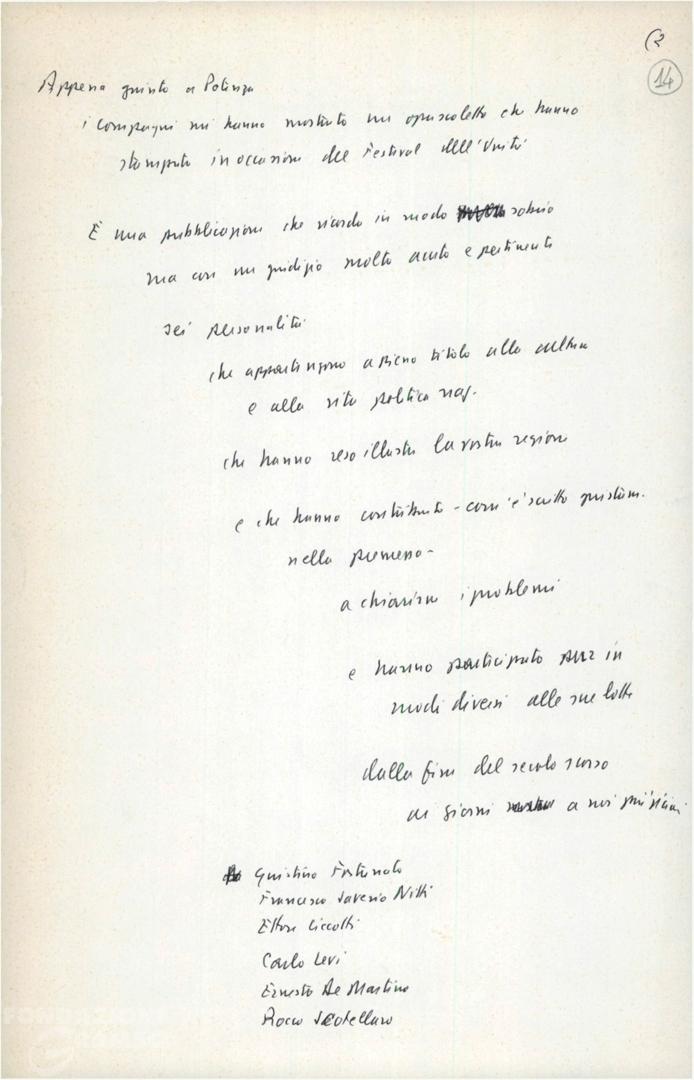 14
Appena giunto a Potenza
i compagni mi hanno mostrato un opuscoletto che hanno
stampato in occasione del Festival dell'Unità
È una pubblicazione che ricorda in modo sobrio
ma con un giudizio molto acuto e pertinente
sei personalità
che appartengono a pieno titolo alla cultura
e alla vita politica naz.
che hanno reso illustre la vostra regione
e che hanno contribuito - com'è scritto giustam.
nella premessa -
a chiarirne i problemi
e hanno partecipato pur in
modi diversi alle sue lotte
dalla fine del secolo scorso
ai giorni a noi più vicini
Giustino Fortunato
Francesco Saverio Nitti
Ettore Ciccotti
Carlo Levi
Ernesto De Martino
Rocco Scotellaro